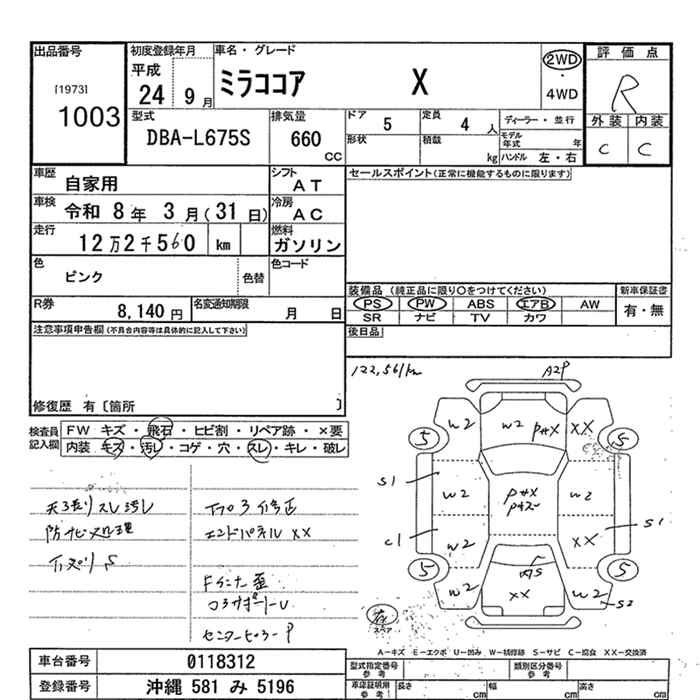 出品番号
[1973]
1003
初度登録年月
平成
24 9月
車名・グレード
ミラココア X
2WD
・
4WD
評価点
R
外装 内装
C C
型式
DBA-L675S
排気量
660
CC
ドア
5
定員
4 人
形状
積載
kg
ディーラー・並行
モデル年式 年
ハンドル 左・右
車歴
自家用
シフト
AT
車検
令和 8年 3月(31日)
冷房
AC
走行
12万2千560 km
燃料
ガソリン
色
ピンク
色替
色コード
R券
8,140円
名変通知期限
月 日
セールスポイント(正常に機能するものに限ります)
装備品 (純正品に限り○をつけてください)
PS PW ABS エアB AW
SR ナビ TV カワ
新車保証書
有・無
後日品
注意事項申告欄(不具合内容等は具体的に記入して下さい)
修復歴 有〔箇所 〕
検査員記入欄
FW キズ・飛石・ヒビ割・リペア跡・×要
内装・キズ・汚レ・コゲ・穴・スレ・キレ・破レ
天張りスレ汚レ
防サビ処理
下マワリS
エンドパネルXX
コアサポートU
センターピラーP
122,561km
A2P
W2
W2
P#X
XX
5
5
S1
W2
P#X
W2
S1
C1
W2
XX
5
5
W2
XX
W2
S2
スペア
A-キズ E-エクボ U-凹み W-補修跡 S-サビ C-腐食 XX-交換済
車台番号
0118312
登録番号
沖縄 581 み 5196
型式指定番号
参考
類別区分番号
参考
車庫証明用
参考
長さ cm
幅 cm
高さ cm